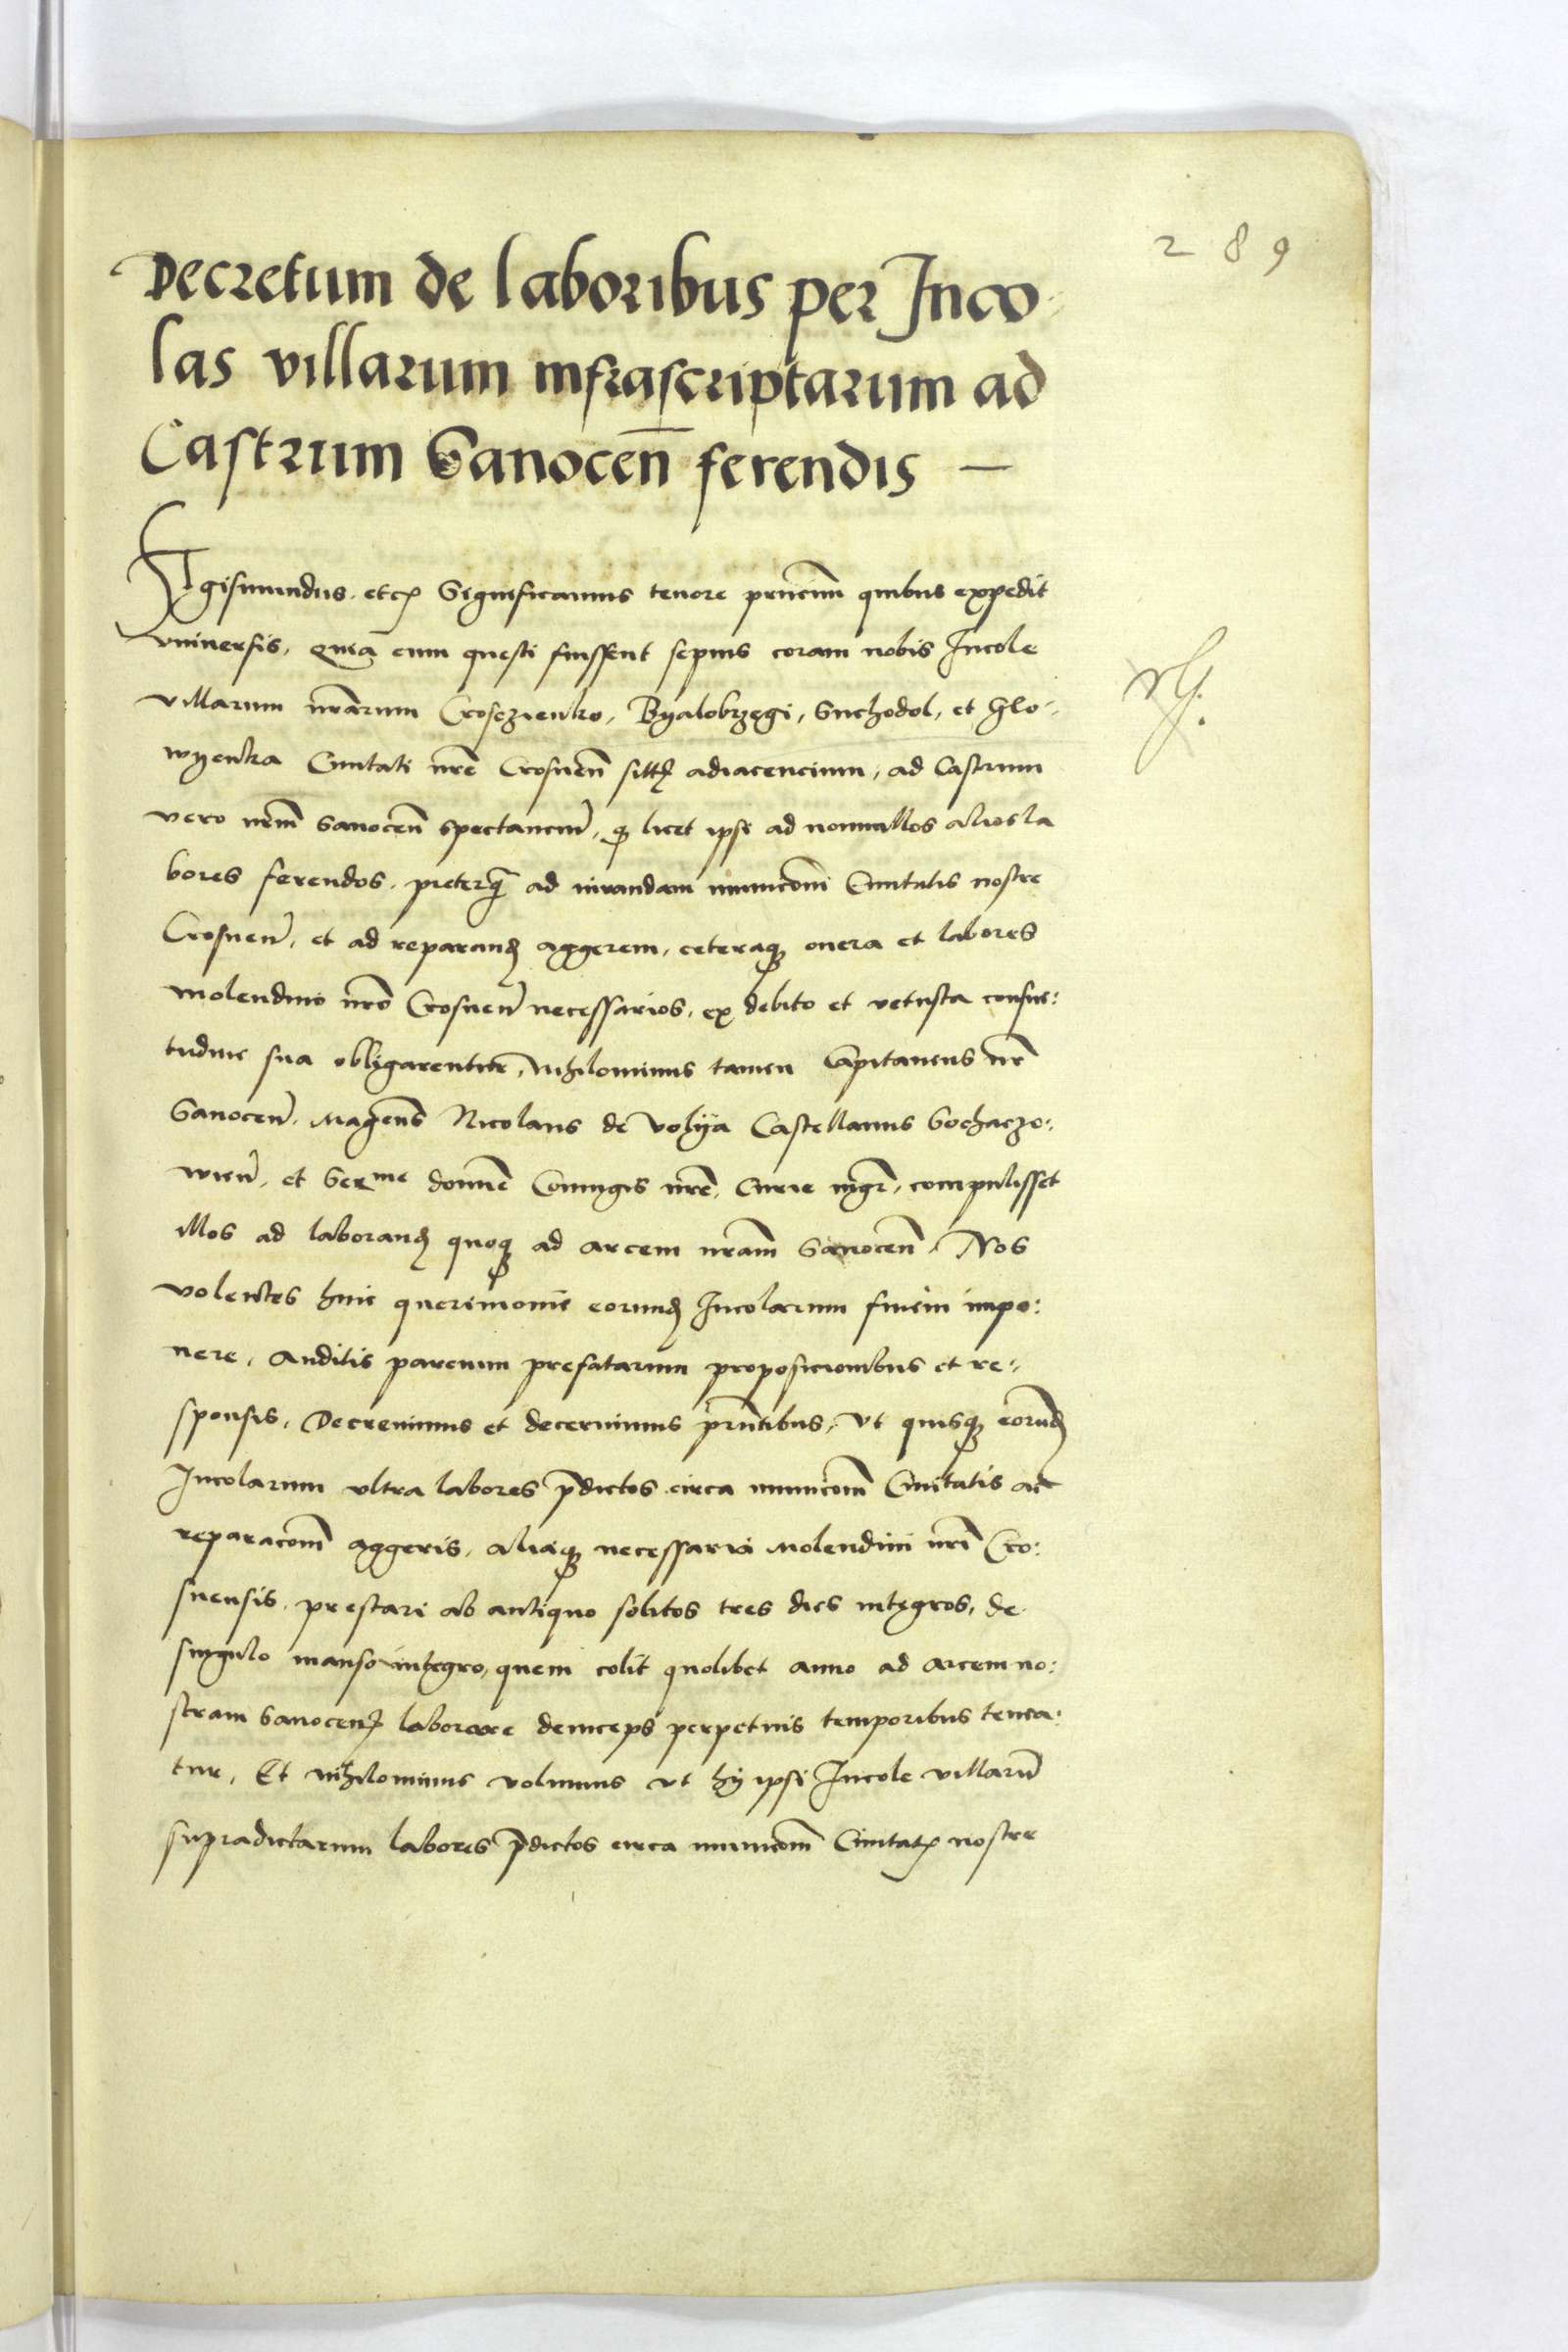 289
Decretum de laboribus per Inco
las villarum infrascriptarum ad
Castrum Sanocen̄ ferendis —
Sigismundus. etc. Significamus tenore prncium quibus expedit
vniuersis, Quia cum questi fuissent sepius coram nobis Incole
villarum nr̄arum Crosczienko, Byalobrzegi, Suchodol, et Glo-
wyenka Ciuitati nr̄e Crosnen̄ adiacencium, ad Castrum
vero nr̄m Sanocen̄ spectancium, licet ipsi ad nonnullos alios la
bores ferendos, preterq̄ ad iuuandam municom̄ Ciuitatis nostre
Crosnen̄, et ad reparand aggerem, ceteraq; onera et labores
molendino nr̄o Crosnen̄ necessarios, ex debito et vetusta consue:
tudine sua obligarentur, Nihilominus tamen Capitaneus nr̄
Sanocen̄. Magcus Nicolaus de Volya Castellanus Sochaczo:
wien̄, et Serme domne Coniugis nr̄e, Curie mgr̄, compulisset
illos ad laborand quoq; ad arcem nr̄am Sanocen̄, Nos
volentes huic querimonie eorund Incolarum finem impo:
nere, Auditis parcium prefatarum proposicionibus et re:
sponsis, Decreuimus et decernimus prn̄tibus, Vt quisq; eorund
Incolarum vltra labores p̄dictos circa municom̄ Ciuitatis ac
reparacom̄ aggeris, aliaq; necessaria Molendini nr̄i Cro:
snensis, prestari ab antiquo solitos tres dies integros, de
singulo manso integro, quem colit quolibet anno ad arcem no:
stram Sanocen̄ laborare deinceps perpetuis temporibus tenea:
tur, Et nihilominus volumus vt hy ipsi Incole villarum̄
supradictarum labores p̄dictos circa municom̄ Ciuitatis nostre